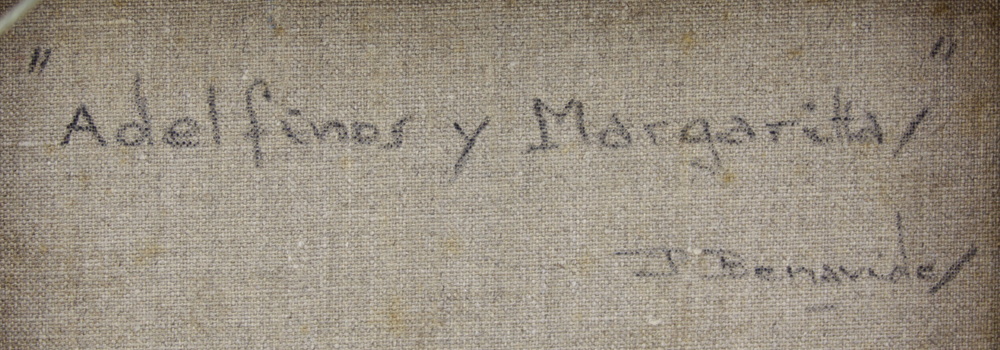 "Adelfinos y Margaritas"
P. Benavides